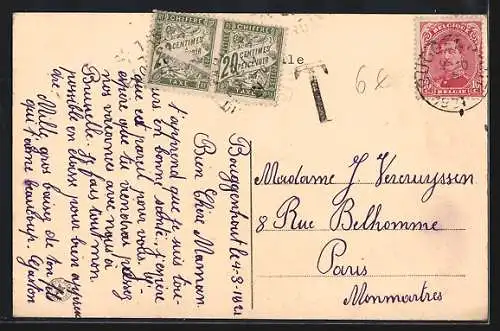 CHIFFRE
20 CENTIMES
TAXE
CHIFFRE
20 CENTIMES
À PERCEVOIR
TAXE
T
6x
BELGIQUE
BELGIE
Bouggenhout le 4-3-1921
Bien Chère Maman.
J'apprend que je suis tou-
jours en bonne santé, j'espère
que est pareil pour vous. j'y-
espère que tu viendras passer
nos vacances avec nous à
Bruxelle. Je fais tout mon
possible en classe pour bien
Mille gros baisers de ton fils
qui t'aime beaucoup. Gaston
Madame J. Vercruyssen
8 Rue Belhomme
Paris
Monmartres